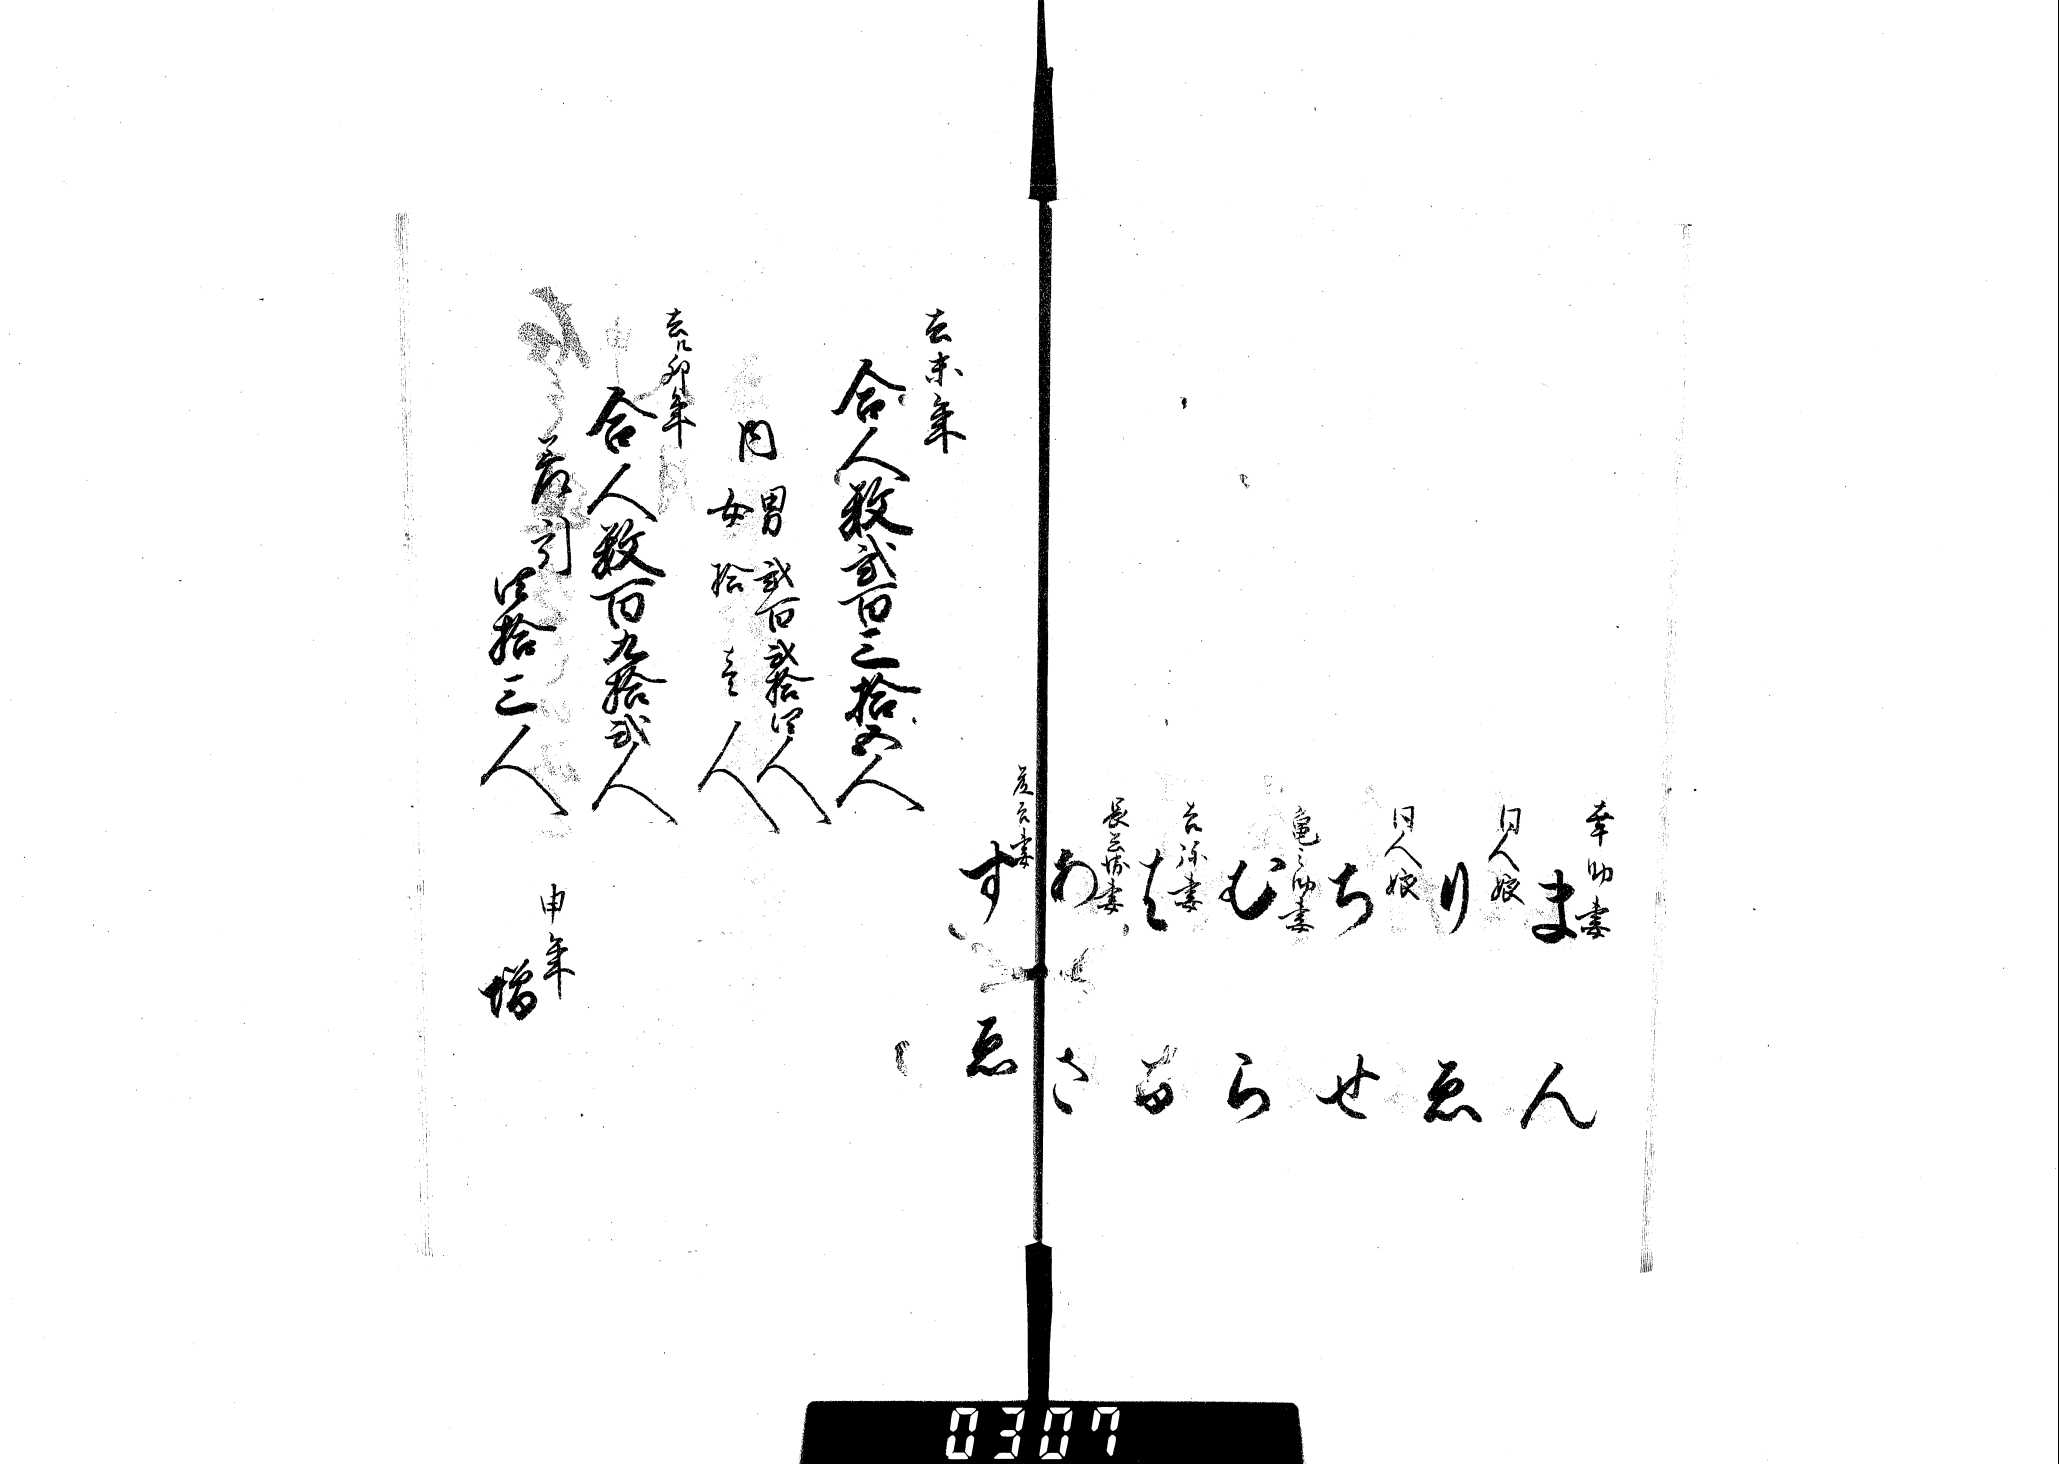 幸助妻
まん
同人娘
りゑ
同人娘
ちせ
亀之助妻
むら
はな
長兵衛妻
あさ
すゑ
去未年
合人数弐百三拾五人
内
男弐百弐拾四人
女拾壱人
去ル卯年
合人数百九拾弐人
差引
四拾三人
申年
増
0307